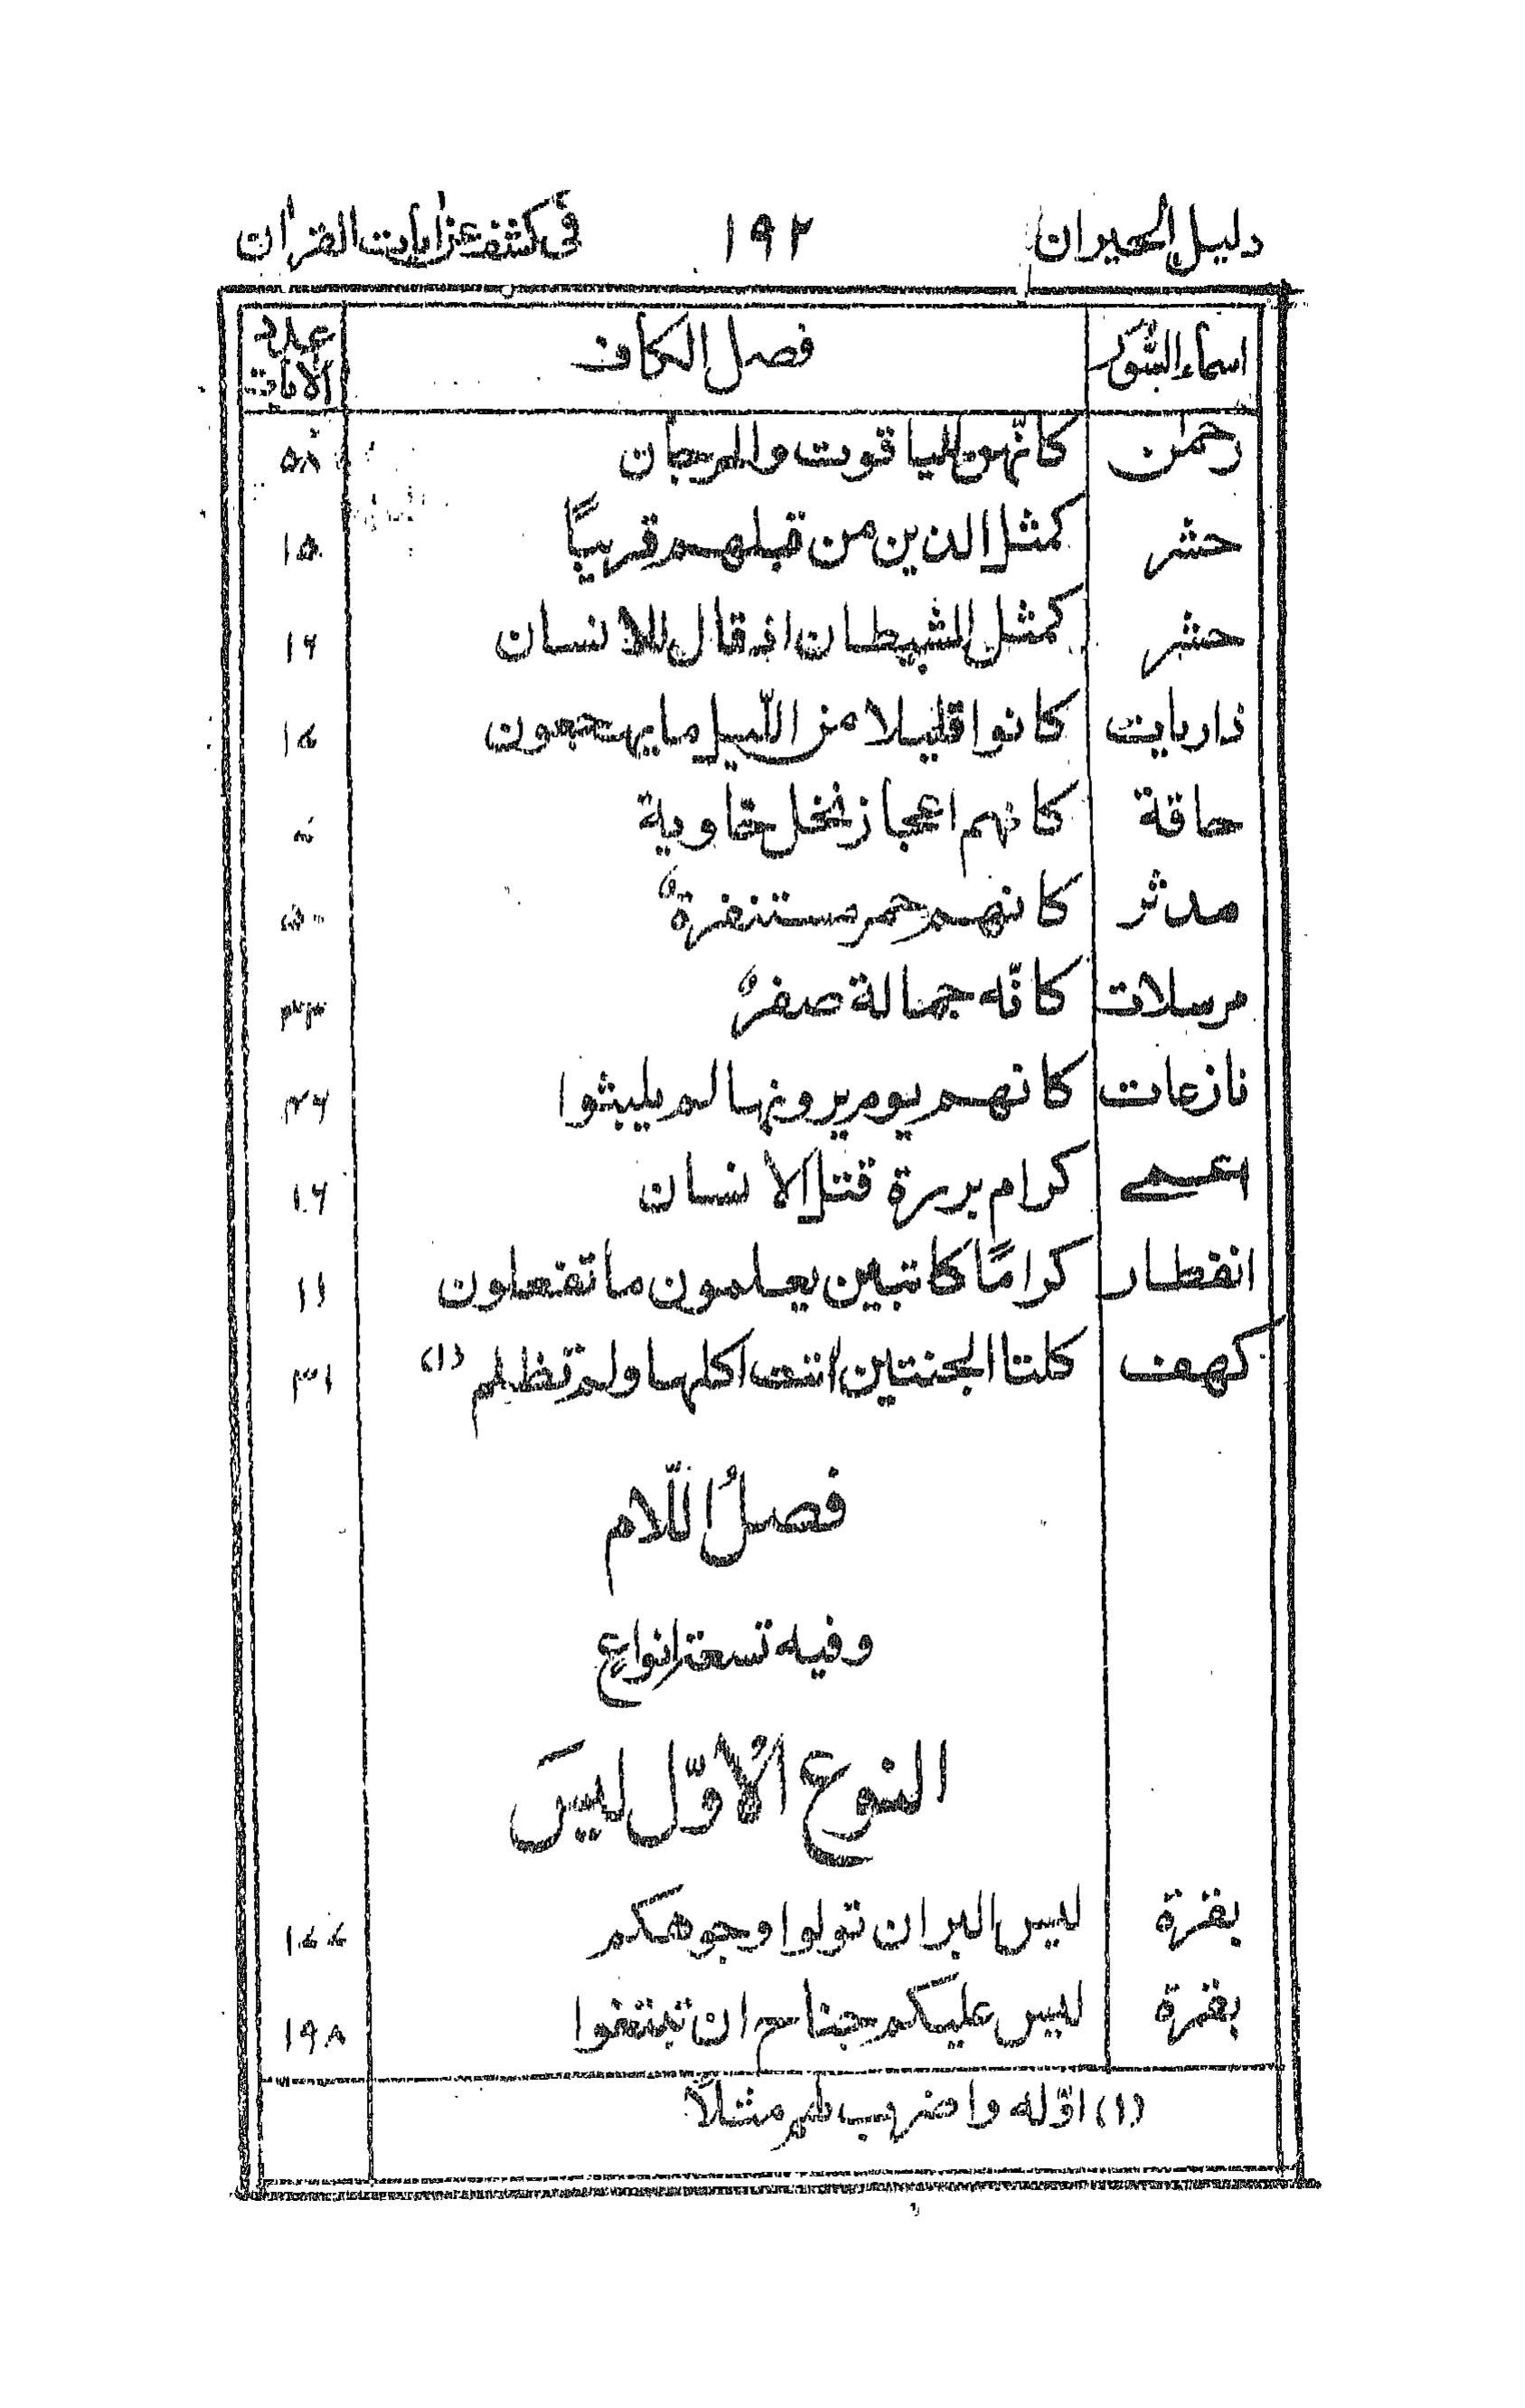 دليل الحيران ١٩٢ فى كشف عن ايات القران
اسماء السُّوَر فصل الكاف عدد الايات
رحمٰن كانّهن الياقوت والمرجان ٥٨
حشر كمثل الذين من قبلهم قريبًا ١٥
حشر كمثل الشيطان اذ قال للانسان ١٦
ذاريات كانوا قليلا من اللّيل ما يهجعون ١٧
حاقة كانهم اعجاز نخل خاوية
مدثر كانهم حمر مستنفرة ٥٠
مرسلات كانّه جمالة صفر ٣٣
نازعات كانهم يوم يرونها لم يلبثوا ٤٦
اعمى كرام بررة قتل الانسان ١٦
انفطار كرامًا كاتبين يعلمون ما تفعلون ١١
كهف كلتا الجنتين اتت اكلها ولم تظلم (١) ٣١
فصلُ اللّام
وفيه تسعة انواع
النوع الاُوّل ليسَ
بقرة ليس البر ان تولوا وجوهكم ١٧٧
بقرة ليس عليكم جناح ان تبتغوا ١٩٨
(١) اوّله واضرب لهم مثلاً